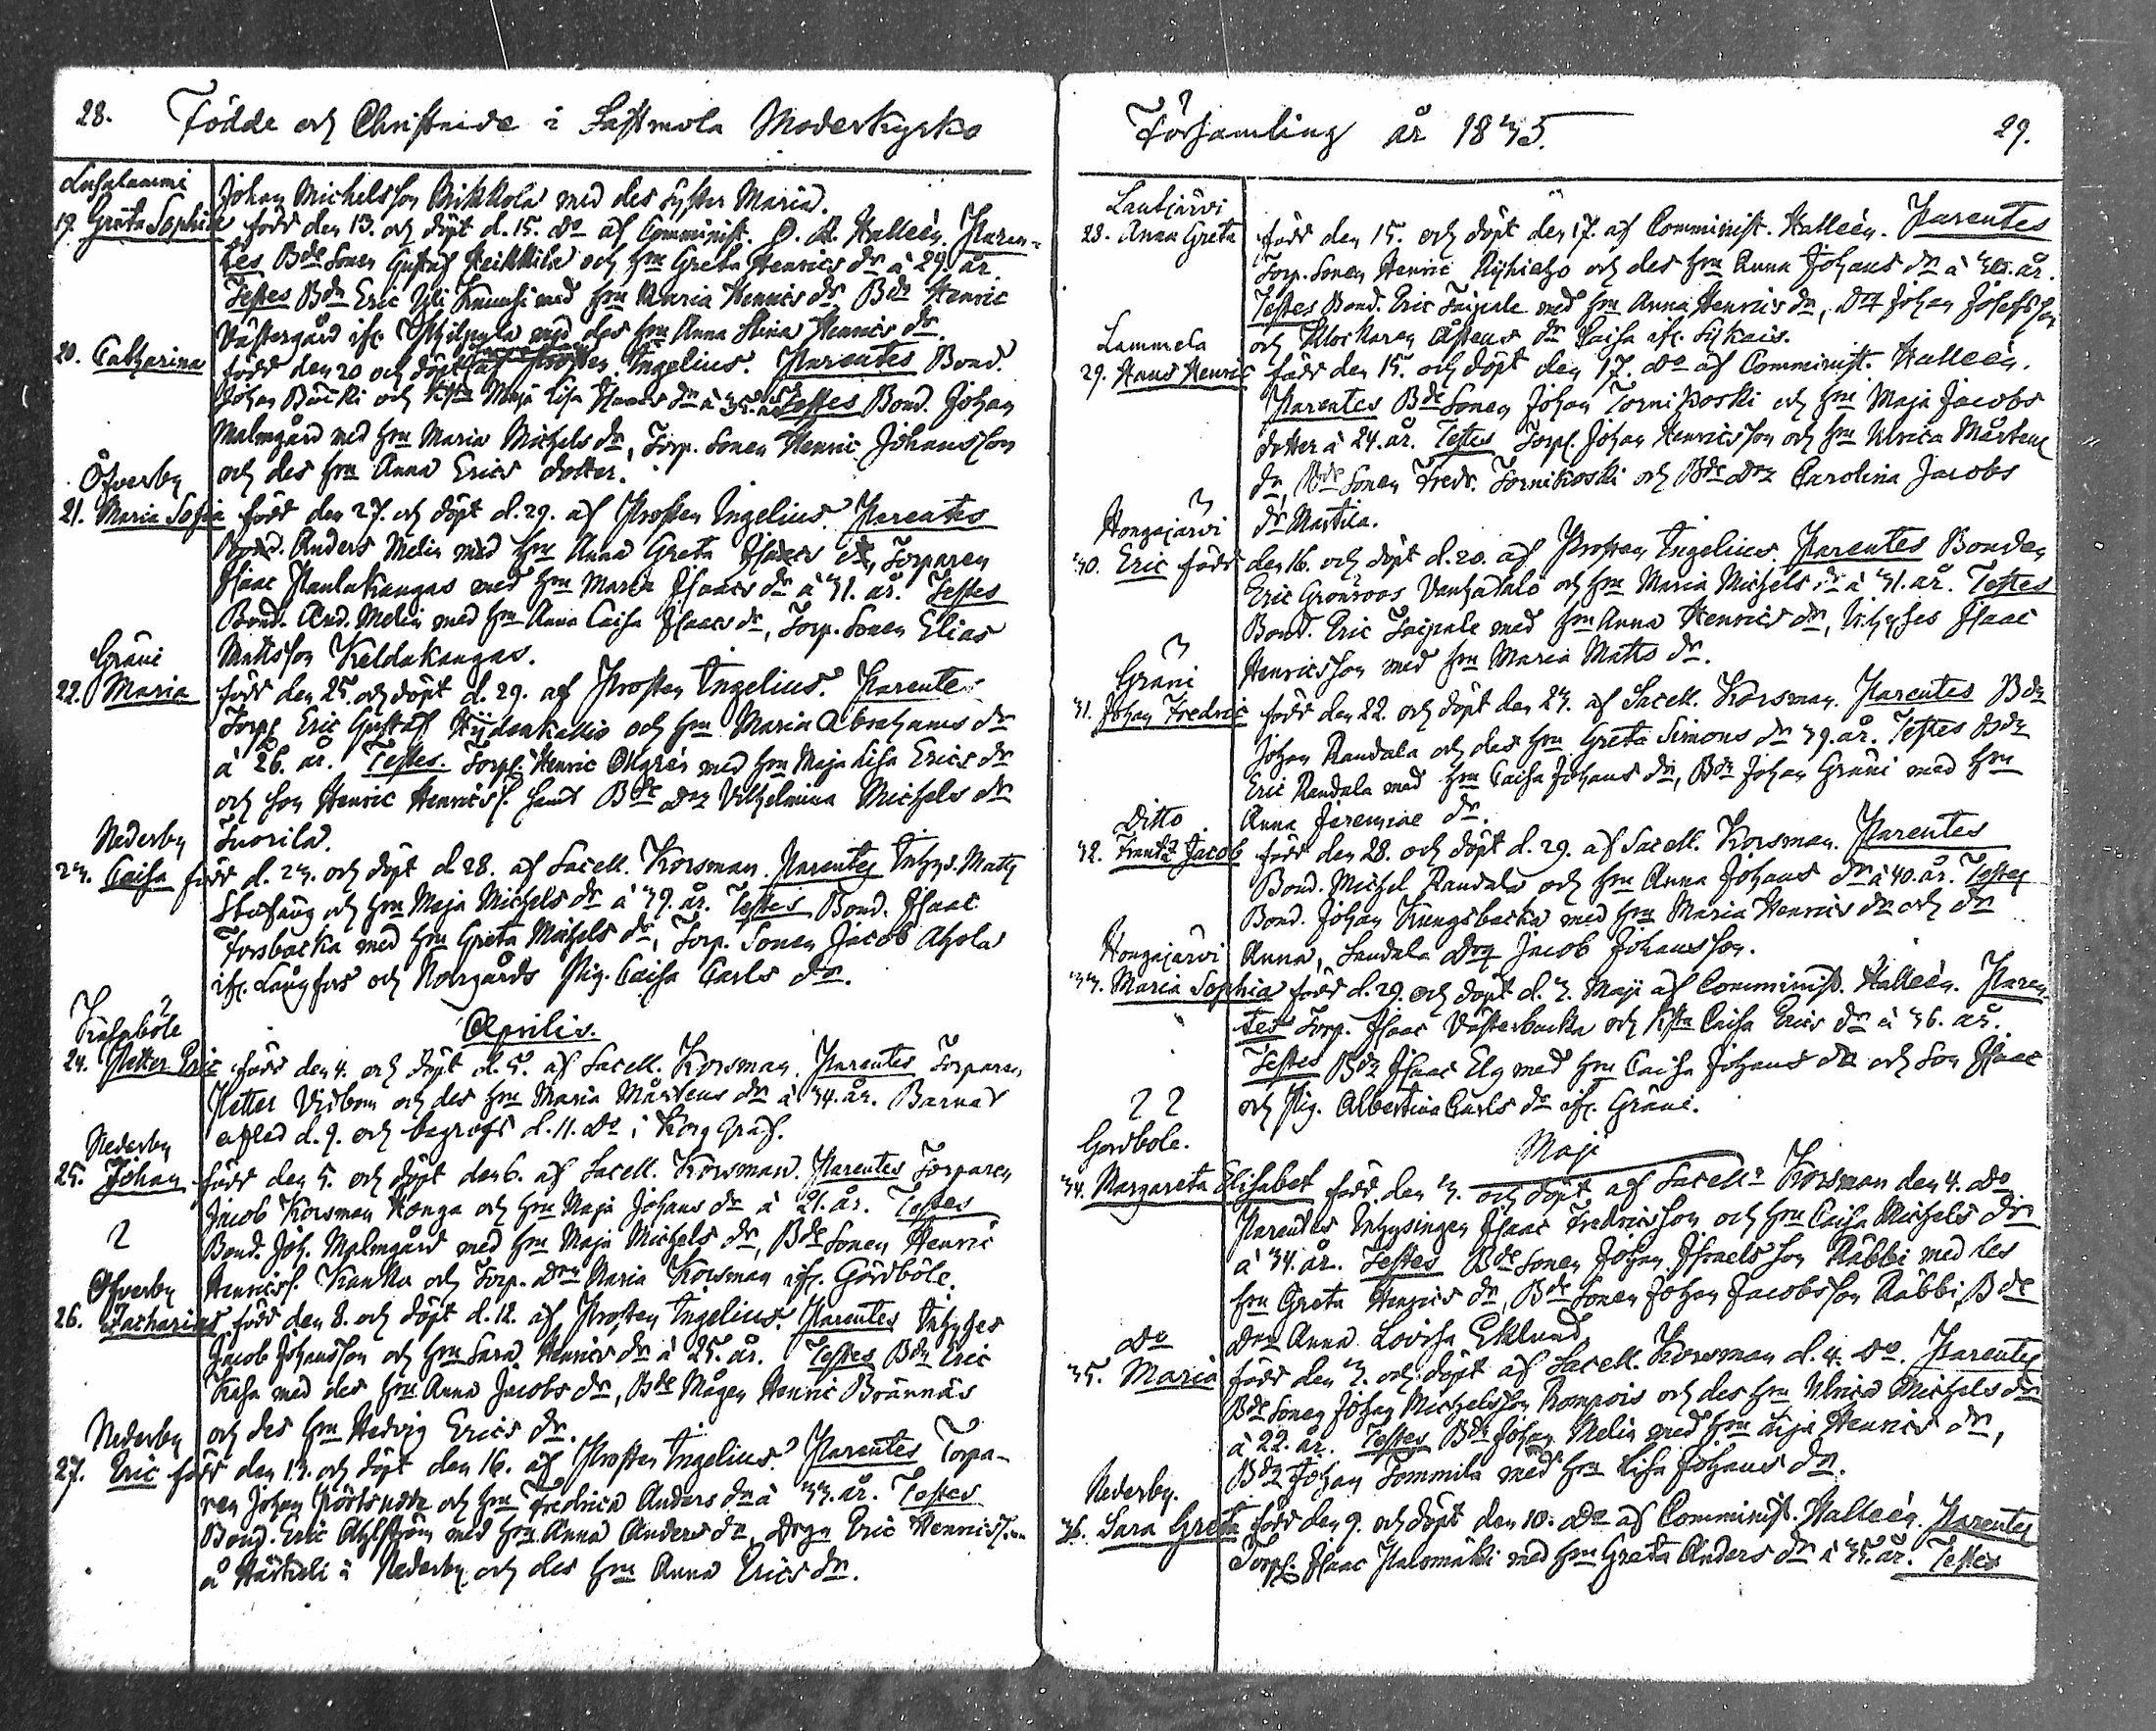 28. Födde och Christnade i Lastmola Moderkyrko
Johan Michelsson Rikkola med des syster Maria.
19. Greta Sophia född den 13. och döpt d. 15. do af Comminist. Halleén. Paren-
tes Bde Sonen Gustaf Heikkilä och hm Greta Henrics dr à 29. år.
Testes Bdn Eric Yli med hm Maria Henrics dr Bdn Henric
Västergård med des hm Anna Stina Henrics dr.
20. Catharina född den 20 och döpt af Prosten Ingelius. Parentes Bond.
Johan och Maja Lisa dr à 35. år Testes Bond. Johan
Malmgård med hm Maria Michels dr, Torp. Sonen Henric Johansson
och des hm Anna Erics dotter.
Öfverby
21. Maria Sofia född den 27. och döpt d. 29. af Prosten Ingelius. Parentes
Bond. Anders Melin med hm Anna Greta Isaacs dr, Torparen
Isaac Paulakangas med hm Maria Isaacs dr à 31. år. Testes
Bond. And. Melin med hm Anna Caisa Isaacs dr, Torp. Sonen Elias
Mattsson Keldakangas.
Gräni
22. Maria född den 25. och döpt d. 29. af Prosten Ingelius. Parentes
Torp. Eric Gustaf Hijdenkallio och hm Maria Abrahams dr
à 26. år. Testes. Torp. Henric med hm Maja Lisa Erics dr
och son Henric Henricss. samt Bde Vilhelmina Michels dr
Suorila.
Nederby
23. Caisa född d. 23. och döpt d. 28. af Sacell. Korsman. Parentes Inhys. Matts
och hm Maja Michels dr à 39. år. Testes Bond. Isaac
Forsbacka med hm Greta Michels dr, Torp. Sonen Jacob Ahola
ifr. Långfors och Norrgårds Pig. Caisa Carls dr.
Aprilis.
24. Petter Eric född den 4. och döpt d. 5. af Sacell. Korsman. Parentes Torparen
Petter Vidbom och des hm Maria Mårtens dr à 34. år. Barnet
afled d. 9. och begrofs d. 11. do i
Nederby
25. Johan född den 5. och döpt den 6. af Sacell. Korsman. Parentes Torparen
Jacob Korsman Konga och hm Maja Johans dr à 21. år. Testes
Bond. Joh. Malmgård med hm Maja Michels dr, Bde Sonen Henric
Henricss. Kanko och Torp. Maria Korsman ifr. Gårdböle.
Öfverby
26. Zacharias född den 8. och döpt d. 12. af Prosten Ingelius. Parentes Inhyses
Jacob Johansson och hm Sara Henrics dr à 25. år. Testes Bdn Eric
Kasa med des hm Anna Jacobs dr, Bde Mågen Henric Brännäs
och des hm Hedvig Erics dr.
Nederby
27. Eric född den 13. och döpt den 16. af Prosten Ingelius. Parentes Torpa-
ren Johan och hm Fredrica Anders dr à 33. år. Testes
Bond. Eric Ahlström med hm Anna Anders dr, Eric Henricss.
å Härkeli i Nederby och des hm Anna Erics dr.
Församling år 1835. 29.
Lautjärvi
28. Anna Greta född den 15. och döpt den 17. af Comminist. Halleén. Parentes
Torp. Sonen Henric och des hm Anna Johans dr à år.
Testes Bond. Eric Taipale med hm Anna Henrics dr, Johan Josefsson
och Klockaren dr Caisa ifr. Sykais.
Lammela
29. Hans Henric född den 15. och döpt den 17. do af Comminist. Halleén.
Parentes Bde Sonen Johan Tornikoski och hm Maja Jacobs
dotter à 24. år. Testes Torp. Johan Henricsson och hm Ulrica Mårtens
dr, Bde Sonen Fredr. Tornikoski och Bde Carolina Jacobs
dr Martila.
Hongajärvi
30. Eric född den 16. och döpt d. 20. af Prosten Ingelius. Parentes Bonden
Eric Grönroos Vanhatalo och hm Maria Michels dr à 31. år. Testes
Bond. Eric Taipale med hm Anna Henrics dr, Inhyses Isaac
Henricsson med hm Maria Matts dr.
Gräni
31. Johan Fredric född den 22. och döpt den 23. af Sacell. Korsman. Parentes Bdn
Johan Randala och des hm Greta Simons dr 39. år. Testes Bdn
Eric Randala med hm Caisa Johans dr, Bdn Johan Gräni med hm
Anna Jeremiae dr.
Ditto
32. Frantz Jacob född den 28. och döpt d. 29. af Sacell. Korsman. Parentes
Bond. Michel Randala och hm Anna Johans dr à 40. år. Testes
Bond. Johan Kungsbacka med hm Maria Henrics dr och dr
Anna, Sandala Jacob Johansson.
Hongajärvi
33. Maria Sophia född d. 29. och döpt d. 3. Maji af Comminist. Halleén. Paren-
tes Torp. Isaac Västerbacka och Caisa Erics dr à 36. år.
Testes Bdn Isaac Elg med hm Caisa Johans dr och son Isaac
och Pig. Albertina Carls dr ifr. Gräni.
Gordbole.
Maji
34. Margareta Elisabet född den 3. och döpt af Sacell. Korsman den 4. do
Parentes Inhysingen Isaac Fredricsson och hm Caisa Michels dr
à 34. år. Testes Bde Sonen Johan Israelsson Räbbi med des
hm Greta Henrics dr, Bde Sonen Johan Jacobsson Räbbi, Bde
Anna Lovisa Eklund.
Do
35. Maria född den 3. och döpt af Sacell. Korsman d. 4. do. Parentes
Bde Sonen Johan Michelsson och des hm Ulrica Michels dr
à 22. år. Testes Bdn Johan Melin med hm Henrics dr,
Bdn Johan Tommila med hm Lisa Johans dr.
Nederby.
36. Sara Greta född den 9. och döpt den 10. do af Comminist. Halleén. Parentes
Torp. Isaac Palomäki med hm Greta Anders dr à 35. år. Testes